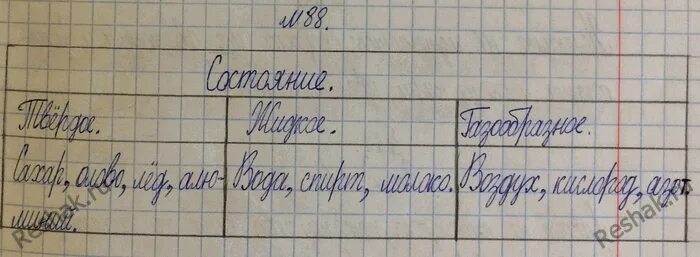 №88.
Состояние.
Твёрдое. Жидкое. Газообразное.
Сахар, олово, лёд, алю- Вода, спирт, молоко. Воздух, кислород, азот.
миний.
Reshak.ru
Reshak.ru